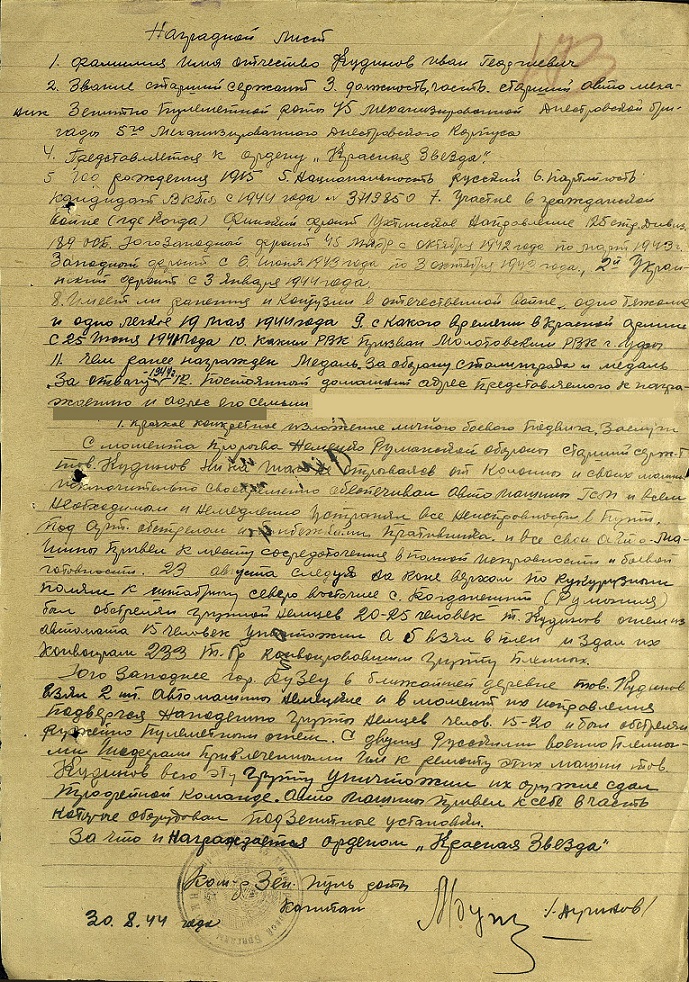 Наградной лист
1. Фамилия имя отчество Кудинов Иван Георгиевич
2. Звание старший сержант 3. должность, часть. старший авто меха-
ник Зенитно Пулеметной роты 45 механизированной Днестровской бри-
гады 5го механизированного Днестровского Корпуса
4. Представляется к ордену „Красная Звезда".
5. год рождения 1915 5. Национальность русский 6. партийность
Кандидат ВКП(б) с 1944 года № 3719850 7. Участие в гражданской
войне (где когда) Финский фронт Ухтинское Направление
Юго западный фронт 45 с октября 1942 года по март 1943 г.
Западный фронт с 6 июня 1943 года по 3 октября 1943 года, 2й Укра-
инский фронт с 3 января 1944 года.
8. Имеет ли ранения и контузии в отечественной войне. одно тяжелое
и одно легкое 19 мая 1944 года 9. с какого времени в Красной армии
с 25 июня 1941 года 10. Каким РВК призван Молотовским РВК г. Уфы
11. Чем ранее награжден Медаль. За оборону сталинграда и медаль
За отвагу 12. Постоянный домашний адрес представляемого к награ-
ждению и адрес его семьи
1. Краткое конкретное изложение личного боевого подвига. Заслуги
С момента прорыва Немецко Румынской обороны старший серж-т
тов. Кудинов от Колонны и своих машин
исключительно своевременно обеспечивал автомашины ГСМ и всем
необходимым и немедленно устранял все неисправности в пути.
под арт. обстрелом и бомбежками противника и все свои авто-ма-
шины привел к месту сосредоточения в полной исправности и боевой
готовности. 23 августа следуя на коне верхом по кукурузным
полям к штабу северо восточнее с. (Румыния)
был обстрелян группой немцев 20-25 человек т. Кудинов огнем из
автомата 15 человек уничтожил а 5 взял в плен и сдал их
конвоирам 233 конвоировавшим группу пленных.
Юго Западнее гор. Бузеу в ближайшей деревне тов. Кудинов
взял 2 шт. Автомашины Немецкие и в момент их исправления
подвергся нападению группы немцев челов. 15-20 и был обстрелян
ружейно пулеметным огнем. С двумя Русскими военно пленны-
ми шоферами привлеченными им к ремонту этих машин тов.
Кудинов всю эту группу уничтожил их оружие сдал
трофейной команде. Авто машины привел к себе в часть
которые оборудовал под зенитные установки.
За что и награждается орденом „Красная Звезда"
Ком-р Зен. Пуль роты
Капитан
30.8.44 года